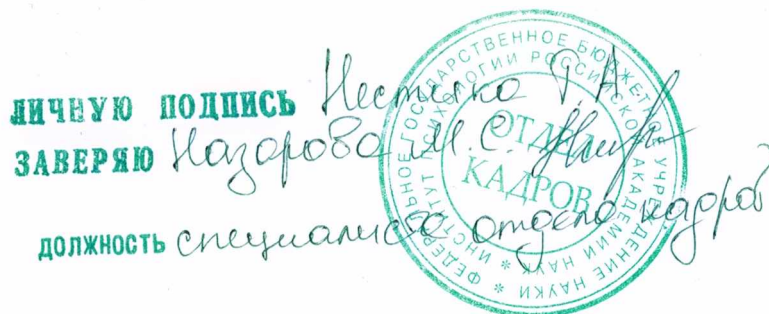 ЛИЧНУЮ ПОДПИСЬ Нестика Т.А.
ЗАВЕРЯЮ Назарова М.С.
ДОЛЖНОСТЬ специалист отдела кадров
ФЕДЕРАЛЬНОЕ ГОСУДАРСТВЕННОЕ БЮДЖЕТНОЕ УЧРЕЖДЕНИЕ НАУКИ *
ИНСТИТУТ ПСИХОЛОГИИ РОССИЙСКОЙ АКАДЕМИИ НАУК *
ОТДЕЛ
КАДРОВ